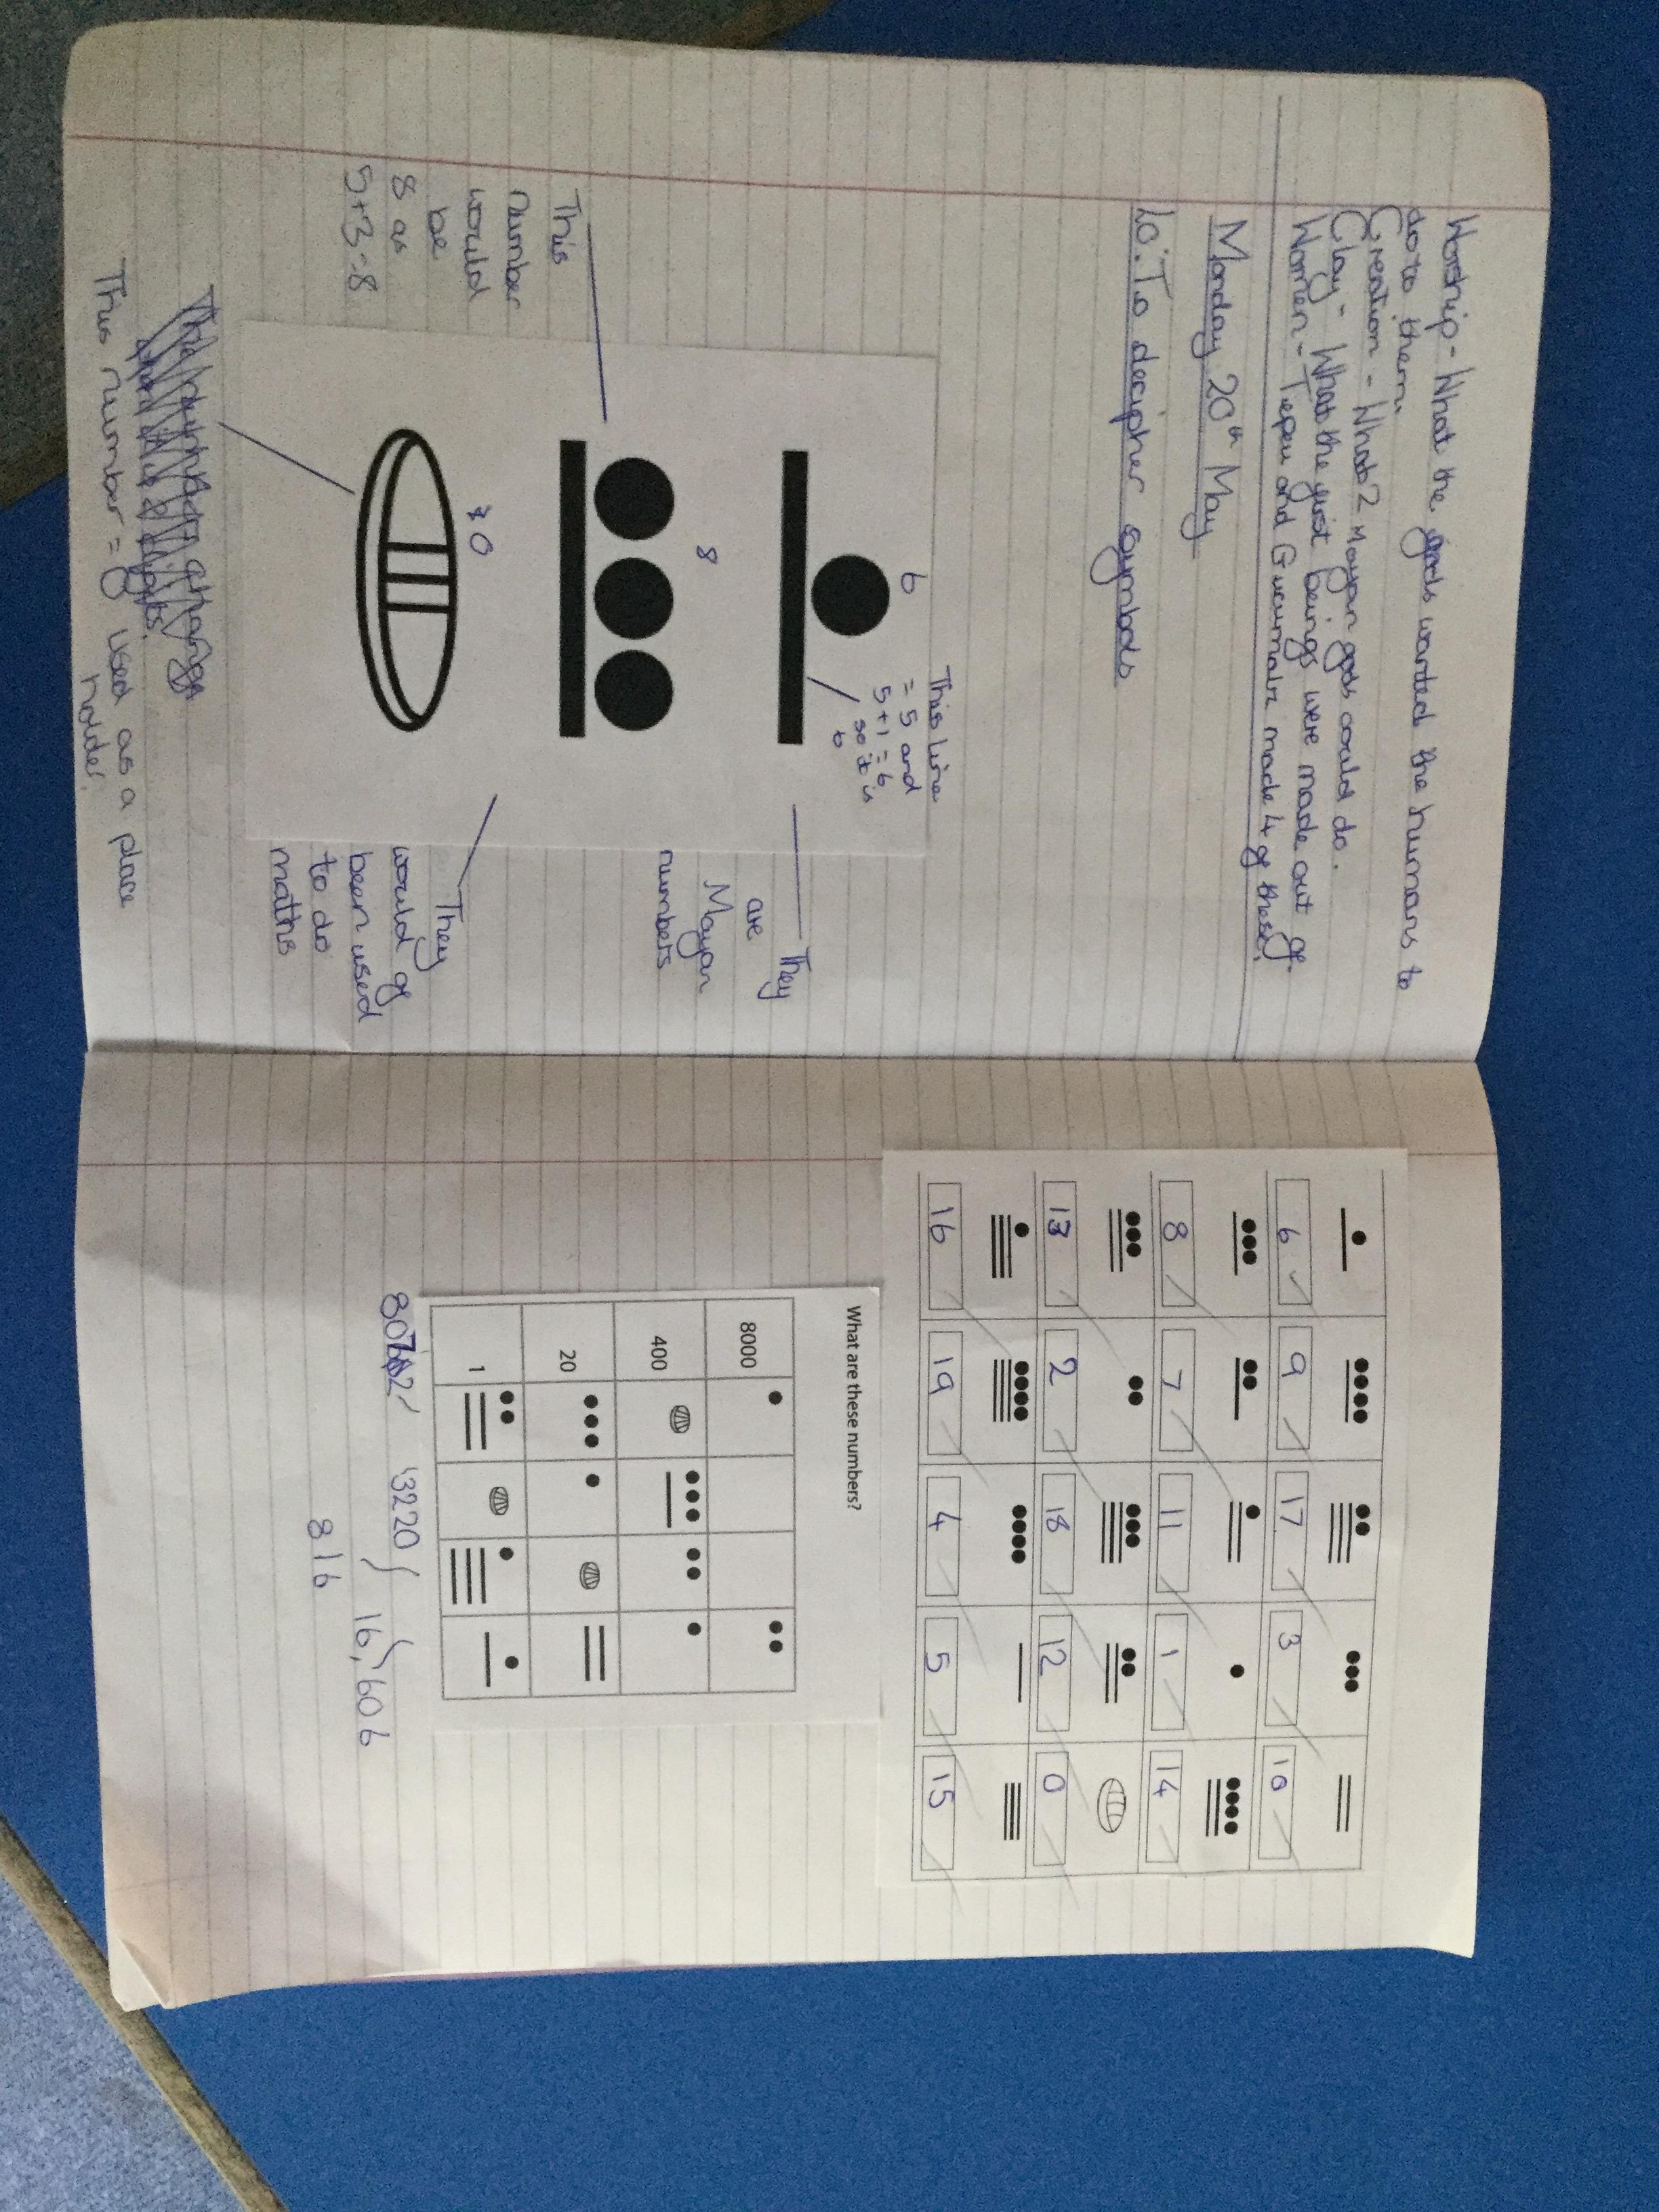 Worship - What the gods wanted the humans to
do to them.
Creation - What 2 Mayan gods could do.
Clay - What the first beings were made out of.
Women - Tepeu and Gucumatz made 4 of these.
Monday 20th May
LO: To decipher symbols
6
This line
= 5 and
5+1=6
so it is
6
They
are
Mayan
numbers
8
This
number
would
be
8 as
5+3=8
0
They
would of
been used
to do
maths
This number = used as a place
holder.
6 9 17 3 10
8 7 11 1 14
13 2 18 12 0
16 19 4 5 15
What are these numbers?
8000
400
20
1
3220
16,606
816